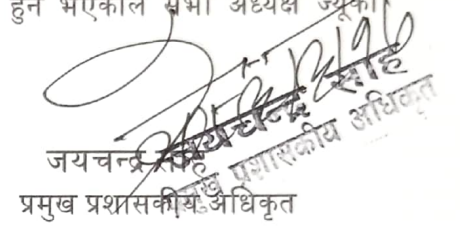 हुन भएकोले सभा अध्यक्ष ज्यूको
जयचन्द्र साह
प्रमुख प्रशासकीय अधिकृत
जयचन्द्र साह
प्रमुख प्रशासकीय अधिकृत